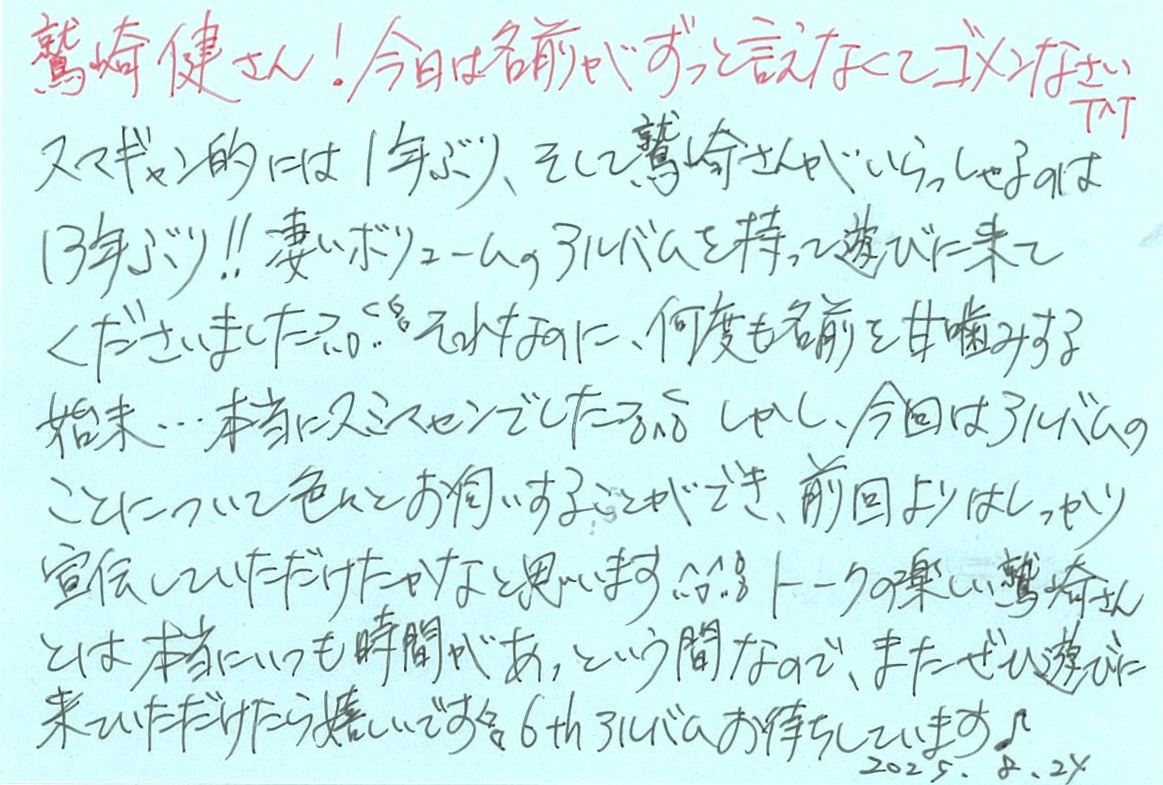 鷲崎健さん!今日は名前がずっと言えなくてゴメンなさい
T^T
スマギャン的には1年ぶり、そして鷲崎さんがいらっしゃるのは
13年ぶり!!凄いボリュームのアルバムを持って遊びに来て
くださいました それなのに、何度も名前を甘噛みする
始末…本当にスミマセンでした しかし、今回はアルバムの
ことについて色々とお伺いすることができ、前回よりはしっかり
宣伝していただけたかなと思います トークの楽しい鷲崎さん
とは本当にいつも時間があっという間なので、またぜひ遊びに
来ていただけたら嬉しいです 6thアルバムお待ちしています♪
2025.8.24